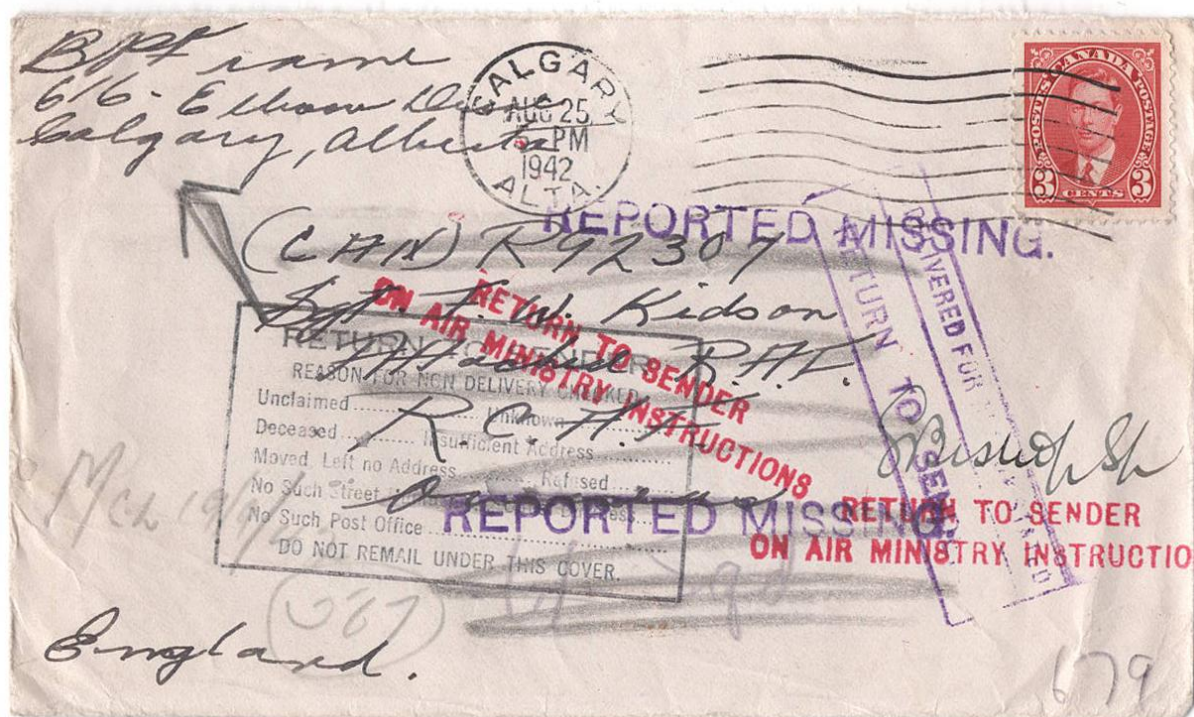 B P Frame
616 - Elbow Drive
Calgary, Alberta
CALGARY
AUG 25
5 PM
1942
ALTA.
POSTES CANADA POSTAGE
3 CENTS 3
REPORTED MISSING.
(CAN) R92307
Sgt. F. W. Kidson
Attached R.A.F.
R.C.A.F.
Overseas
England.
RETURN TO SENDER
ON AIR MINISTRY INSTRUCTIONS
RETURN TO SENDER
REASON FOR NON DELIVERY CHECKED
Unclaimed ............ Unknown ............
Deceased ............ Insufficient Address ............
Moved, Left no Address ............ Refused ............
No Such Street
No Such Post Office ............
DO NOT REMAIL UNDER THIS COVER.
DELIVERED FOR
RETURN TO SENDER
REPORTED MISSING.
RETURN TO SENDER
ON AIR MINISTRY INSTRUCTIO
567
679